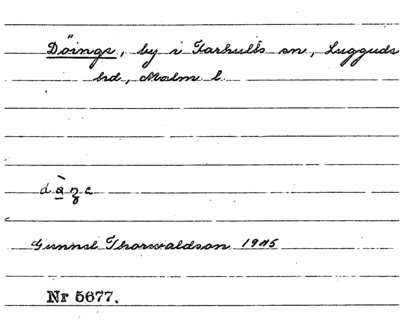 Döinge, by i Farhults sn, Lugguds
hd, Malm. l.
Gunnel Thorwaldson 1945
Nr 5677.